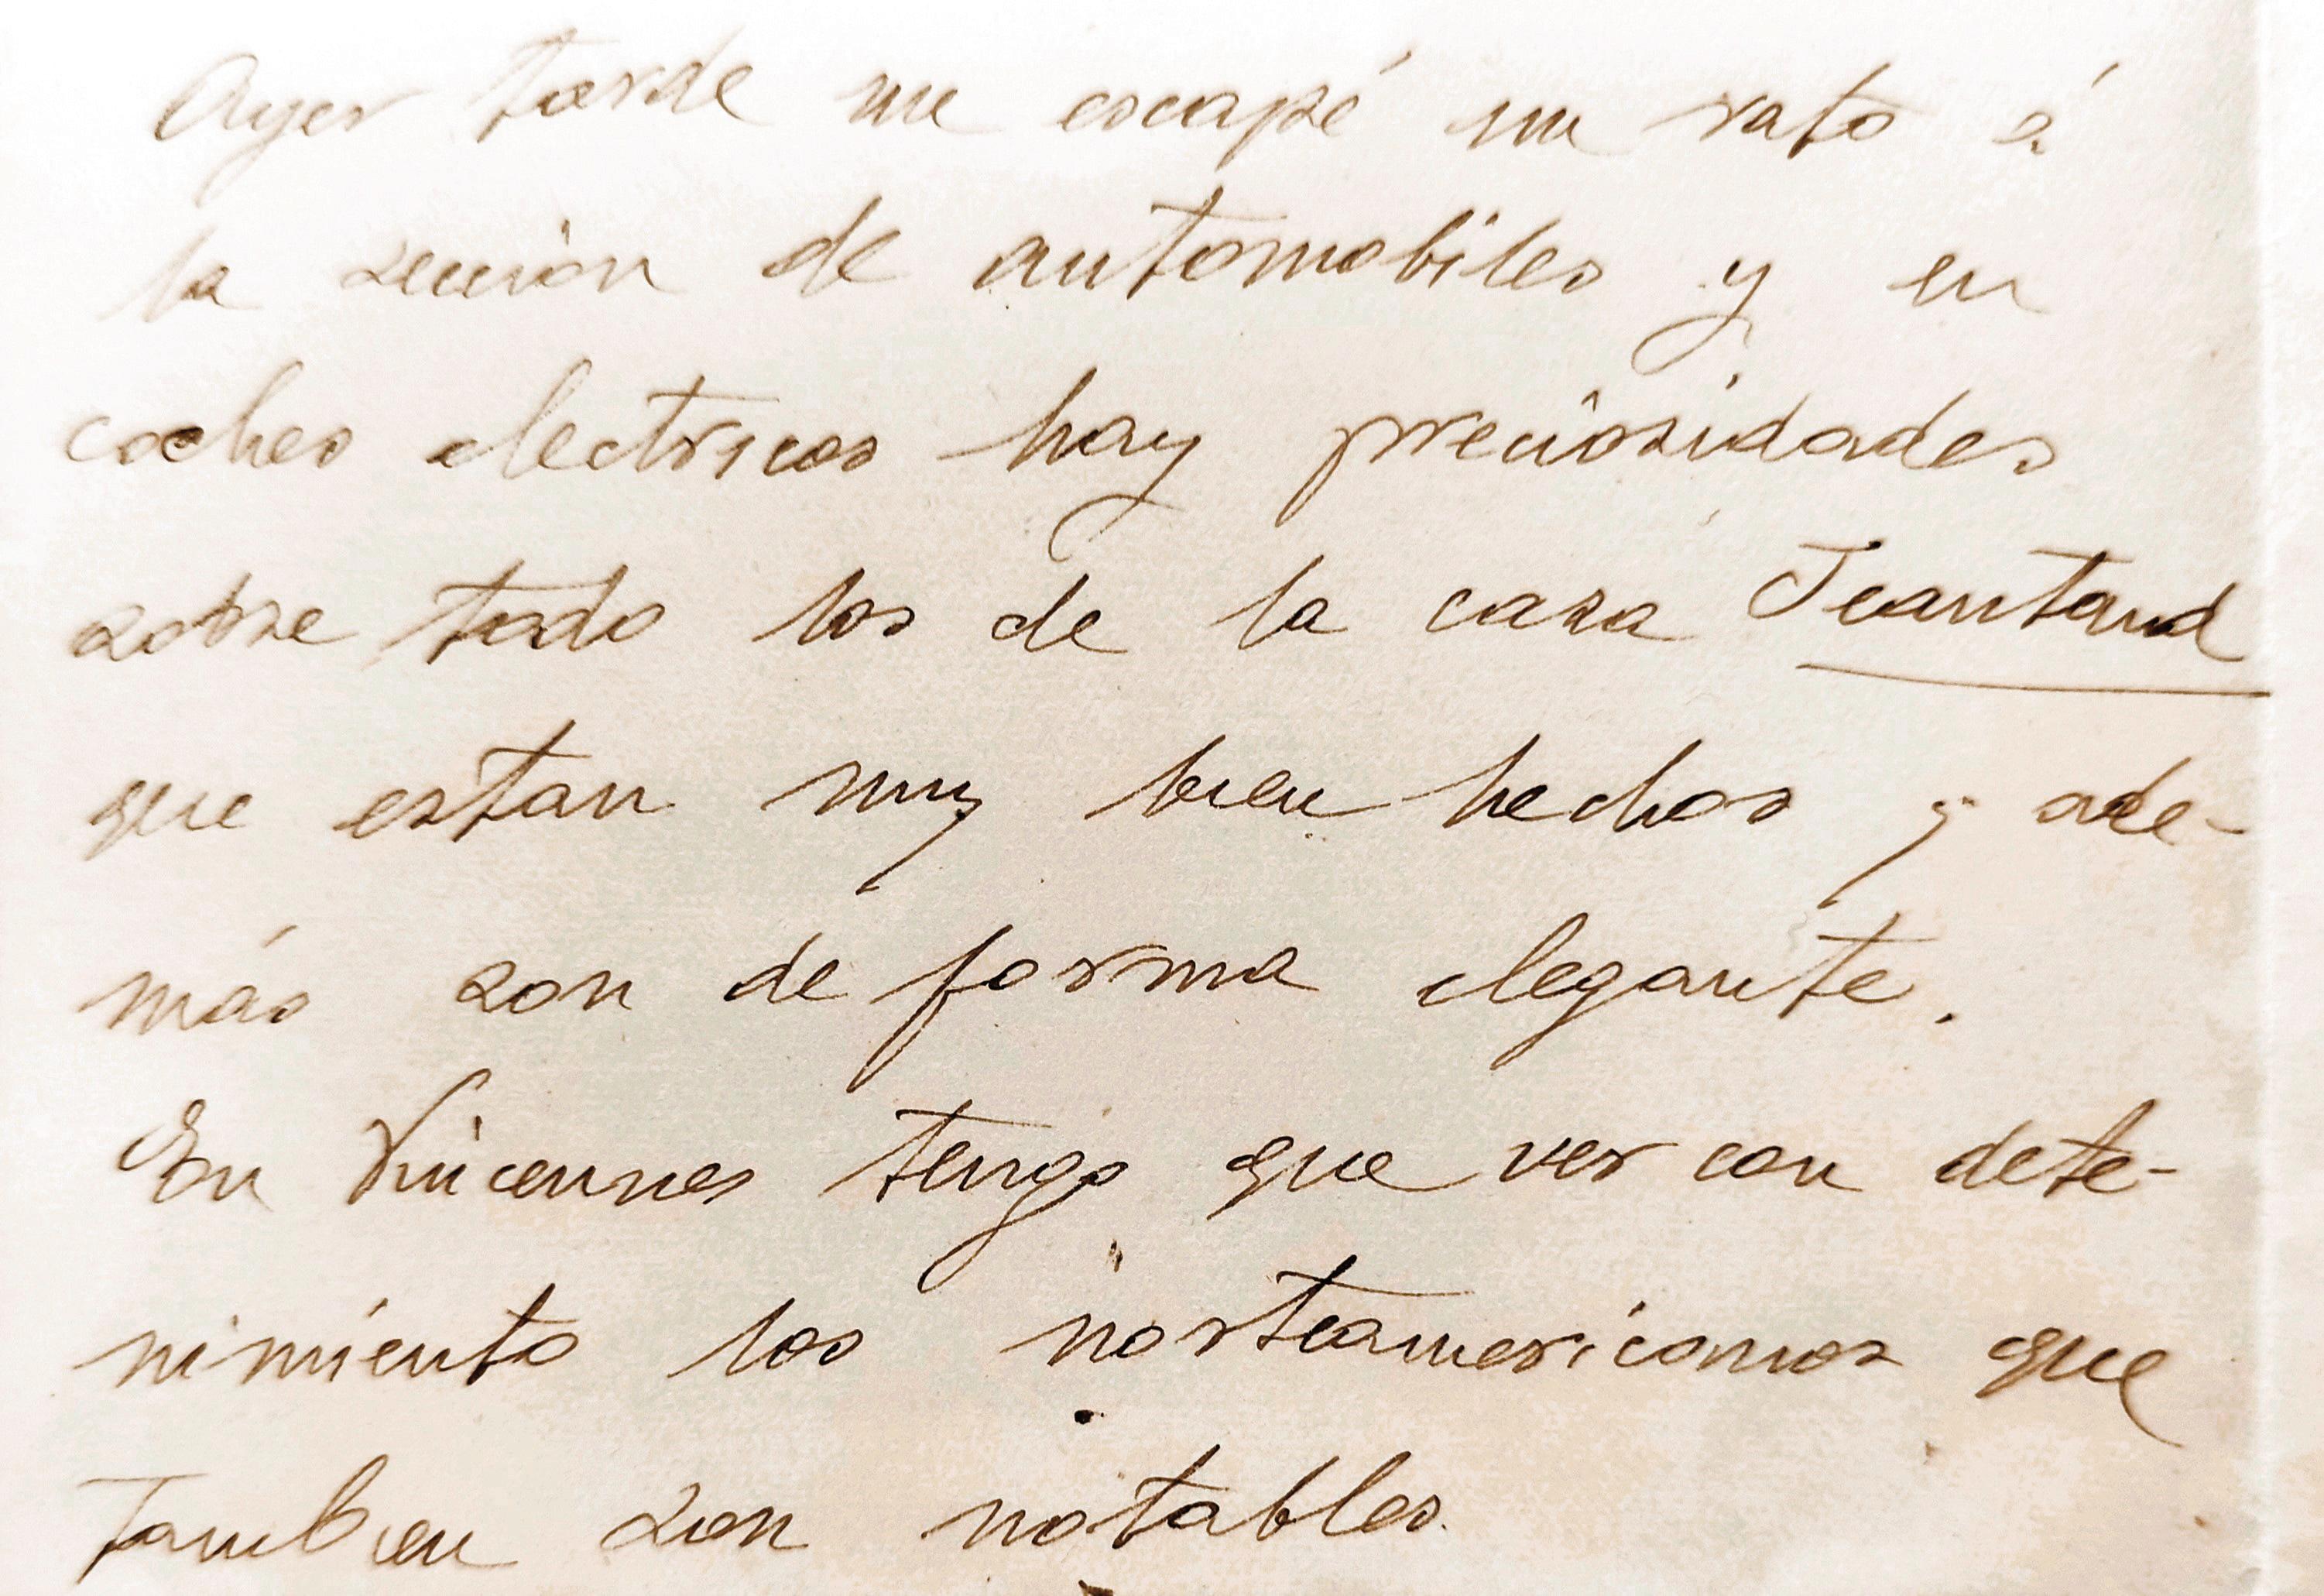 Ayer tarde me escapé un rato á
la sección de automobiles y en
coches electricos hay preciosidades
sobre todo los de la casa Jeantaud
que estan muy bien hechos y ade-
más son de forma elegante.
En Vincennes tengo que ver con dete-
nimiento los norteamericanos que
tambien son notables.